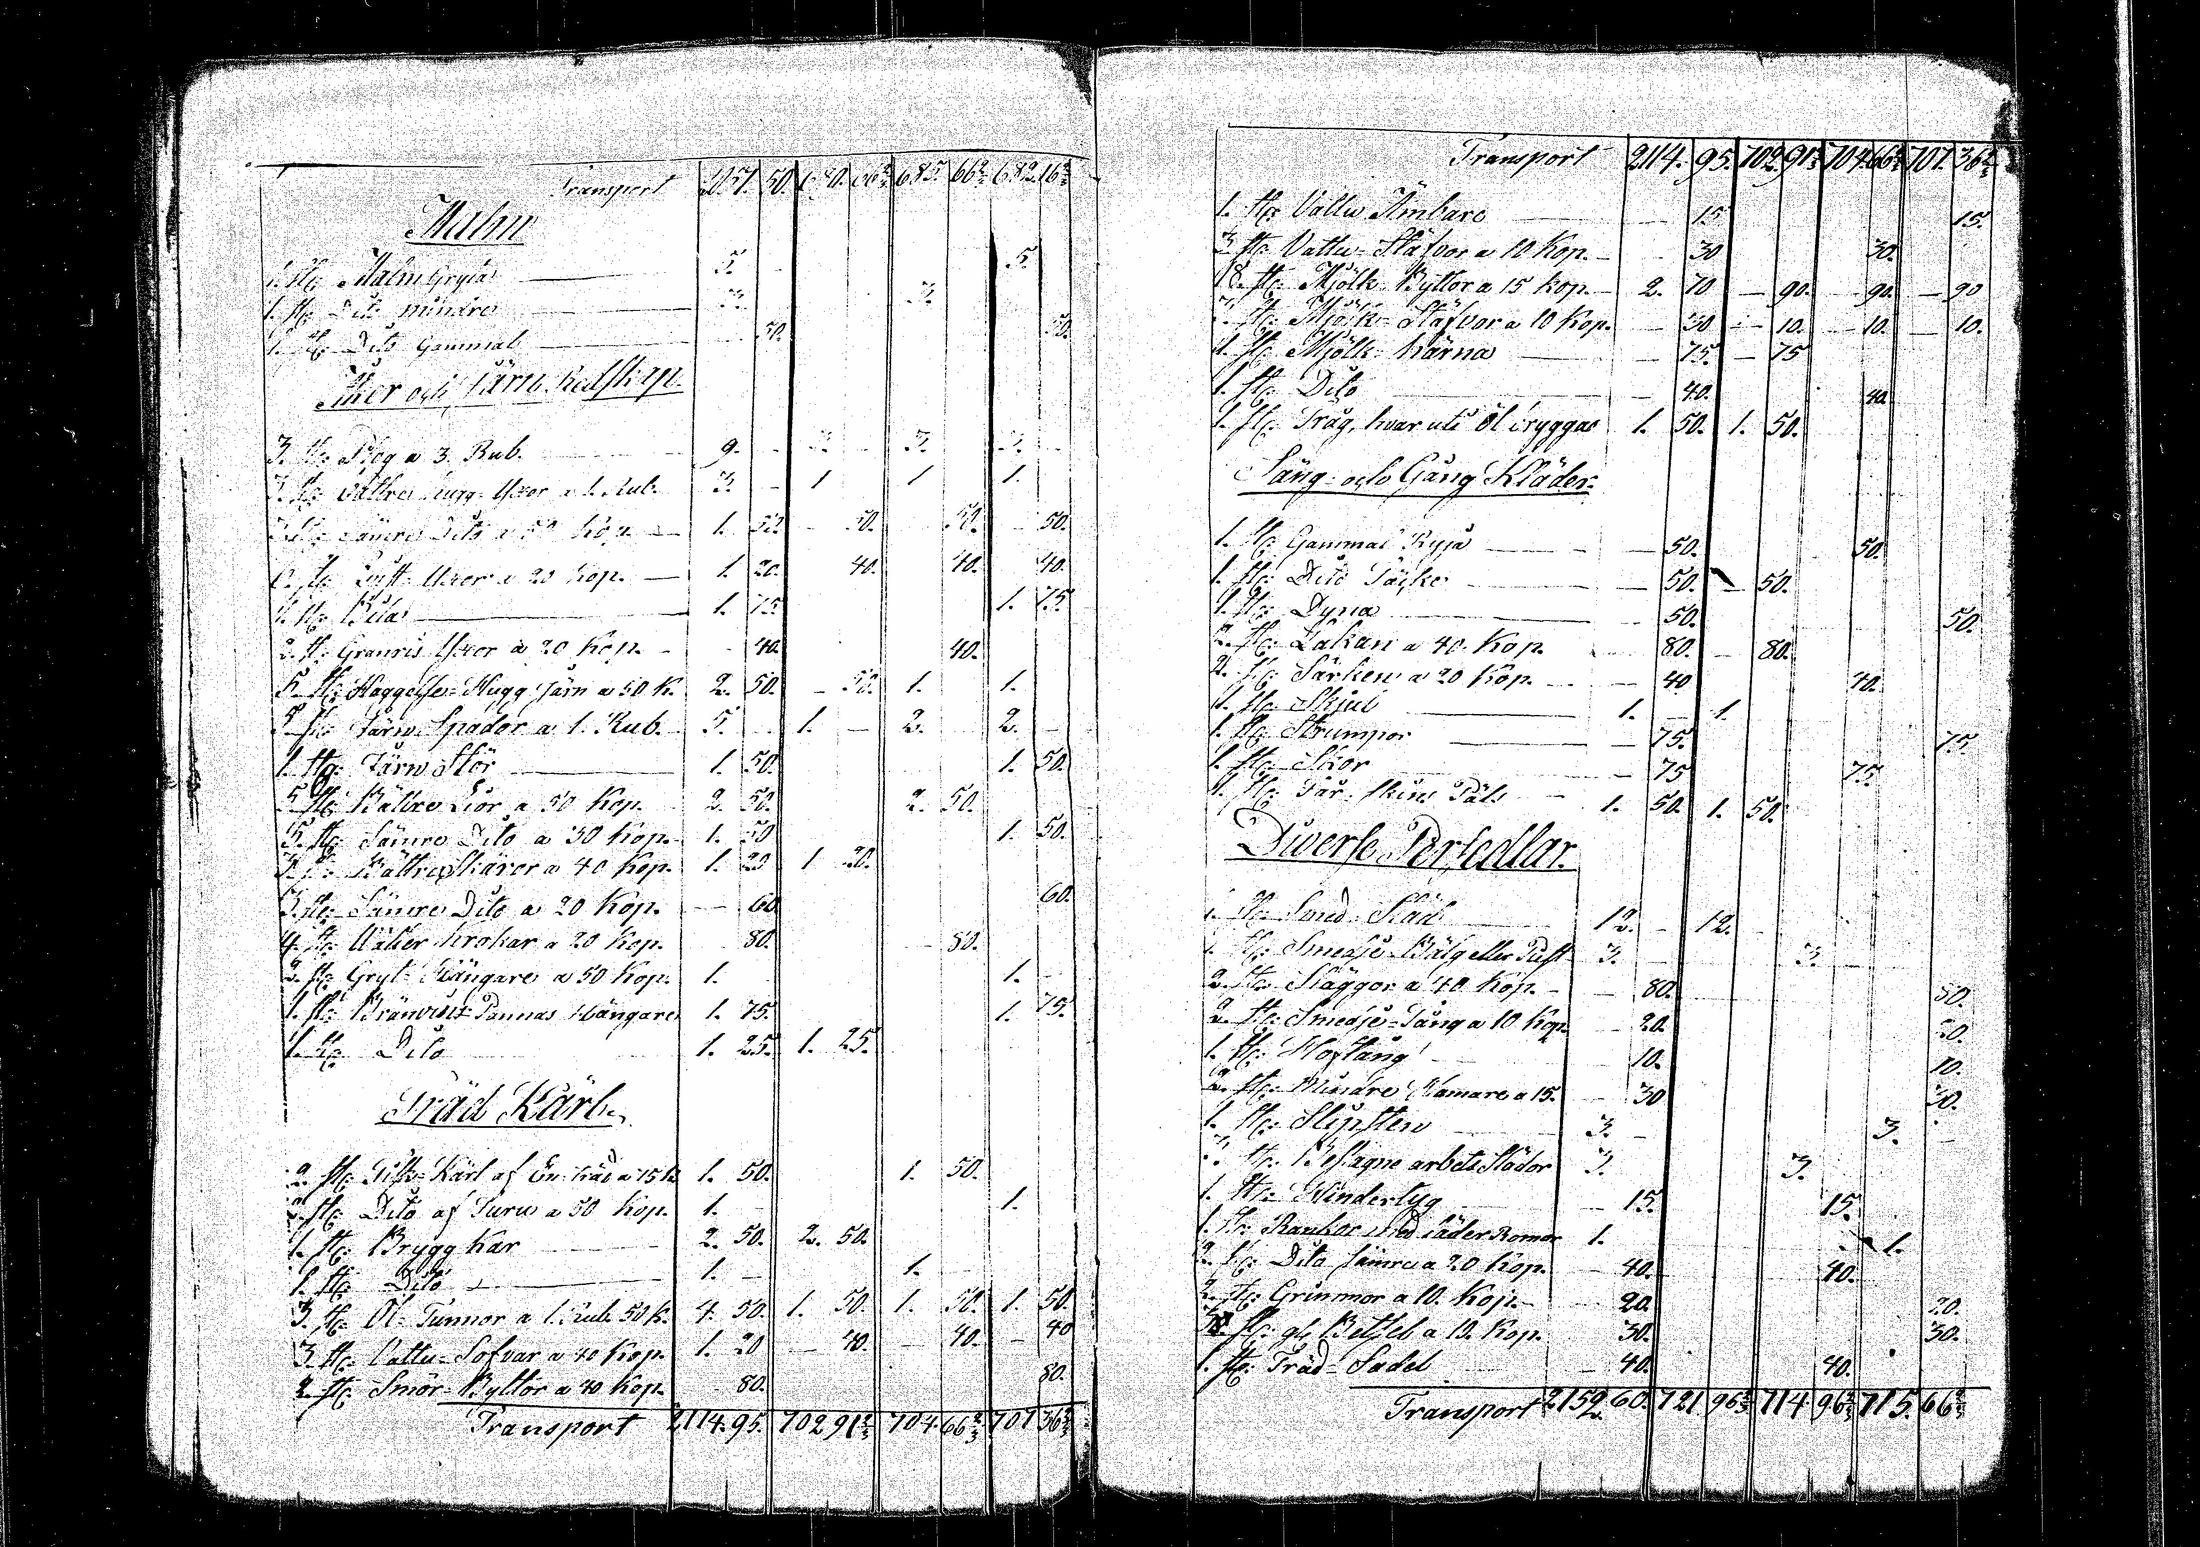 Transport 2057. 50. 680. 66 2/3 685. 66 2/3 682. 16 2/3
Malm
1. st: Malm Gryta 5. 5.
1. st: Dito mindre 3. 3.
1. st: Dito Gammal 50. 50.
Åker och Järn Redskap.
3. st: Plog a 3. Rub. 9. 3. 3. 3.
3. st: Bättre Hugg Yxor a 1. Rub. 3. 1 1 1.
3. st: Sämre Dito a 50 Kop. 1. 50. 50. 50. 50.
6. st: Yxor a 20 Kop. 1. 20. 40. 40. 40.
1. st: Bila 1. 75 1. 75.
2. st: Granris Yxor a 20 Kop. 40. 40.
5. st: Haggelse-Hugg Järn a 50 K. 2. 50. 50. 1. 1.
5. st: Järn Spador a 1. Rub. 5. 1. 2. 2.
1. st: Järn Stör 1. 50. 1. 50.
5. st: Bättre Liar a 50 Kop. 2. 50. 2. 50.
5. st: Sämre Dito a 30 Kop. 1. 50 1. 50.
3. st: Bättre Skäror a 40 Kop. 1. 20 1. 20.
3. st: Sämre Dito a 20 Kop. 60 60.
4. st: krokar a 20 Kop. 80. 80.
2. st: Gryt-Hängare a 50 Kop. 1. 1.
1. st: Bränvins-Pannas Hängare 1. 75. 1. 75.
1. st: Dito 1. 25. 1. 25.
Träd Kärl.
2. st: Kärl af En träd a 75 K 1. 50. 1. 50.
2. st: Dito af Furu a 50 Kop. 1. 1.
1. st: Brygg Kar 2. 50. 2. 50.
1. st: Dito 1. 1.
3. st: Öl-Tunnor a 1. Rub. 50 K. 4. 50. 1. 50. 1. 50. 1. 50.
3. st: Vattu-Sofvar a 40 Kop. 1. 20 40. 40. 40
2. st: Smör-Byttor a 40 Kop. 80. 80.
Transport 2114. 95. 702 91 2/3 704. 66 2/3 707 36 2/3
Transport 2114. 95. 702. 91 2/3 704. 66 2/3 707. 36 2/3
1. st: Vattu Ämbare 15 15.
3. st: Vattu-Stäfvor a 10 Kop. 30 30.
18. st: Mjölk-Byttor a 15 Kop. 2. 70 90. 90. 90
3. st: Mjölk-Stäfvor a 10 Kop. 30 10. 10. 10.
1. st: Mjölk-kärna 75. 75
1. st: Dito 40. 40.
1. st: Tråg, hvar uti Öl bryggas 1. 50. 1. 50.
Säng- och Gång Kläder.
1. st: Gammal Ryja 50. 50.
1. st: Dito Täcke 50. 50.
1. st: Dyna 50. 50.
2. st: Lakan a 40. Kop. 80. 80.
2. st: Särken a 20 Kop. 40 40.
1. st: Skjul 1. 1.
1. st: Strumpor 75. 75.
1. st: Skor 75 75.
1. st: Får-skins Päls 1. 50. 1. 50.
Diverse Persedlar.
1. st: Smed-Städ 12. 12.
1. st: Smedje-Bälg eller Pust 3. 3.
2. st: Släggor a 40 Kop. 80. 80.
2. st: Smedje-Tång a 10 Kop. 20. 20.
1. st: Hoftång 10. 10.
2. st: Mindre Hamare a 15. 30 30.
1. st: Slipsten 3. 3.
3. st: Beslagne arbets Slädor 3. 3.
1. st: Windertyg 15. 15.
1. st: Rankor med Läder Romor 1. 1.
2. st: Dito sämre a 20 Kop. 40. 40.
2. st: Grimmor a 10. Kop. 20. 20.
3. st: gl. Betsel a 10. Kop. 30. 30.
1. st: Träd-Sadel 40. 40.
Transport 2152 60. 721 96 2/3 714 96 2/3 715. 66 2/3